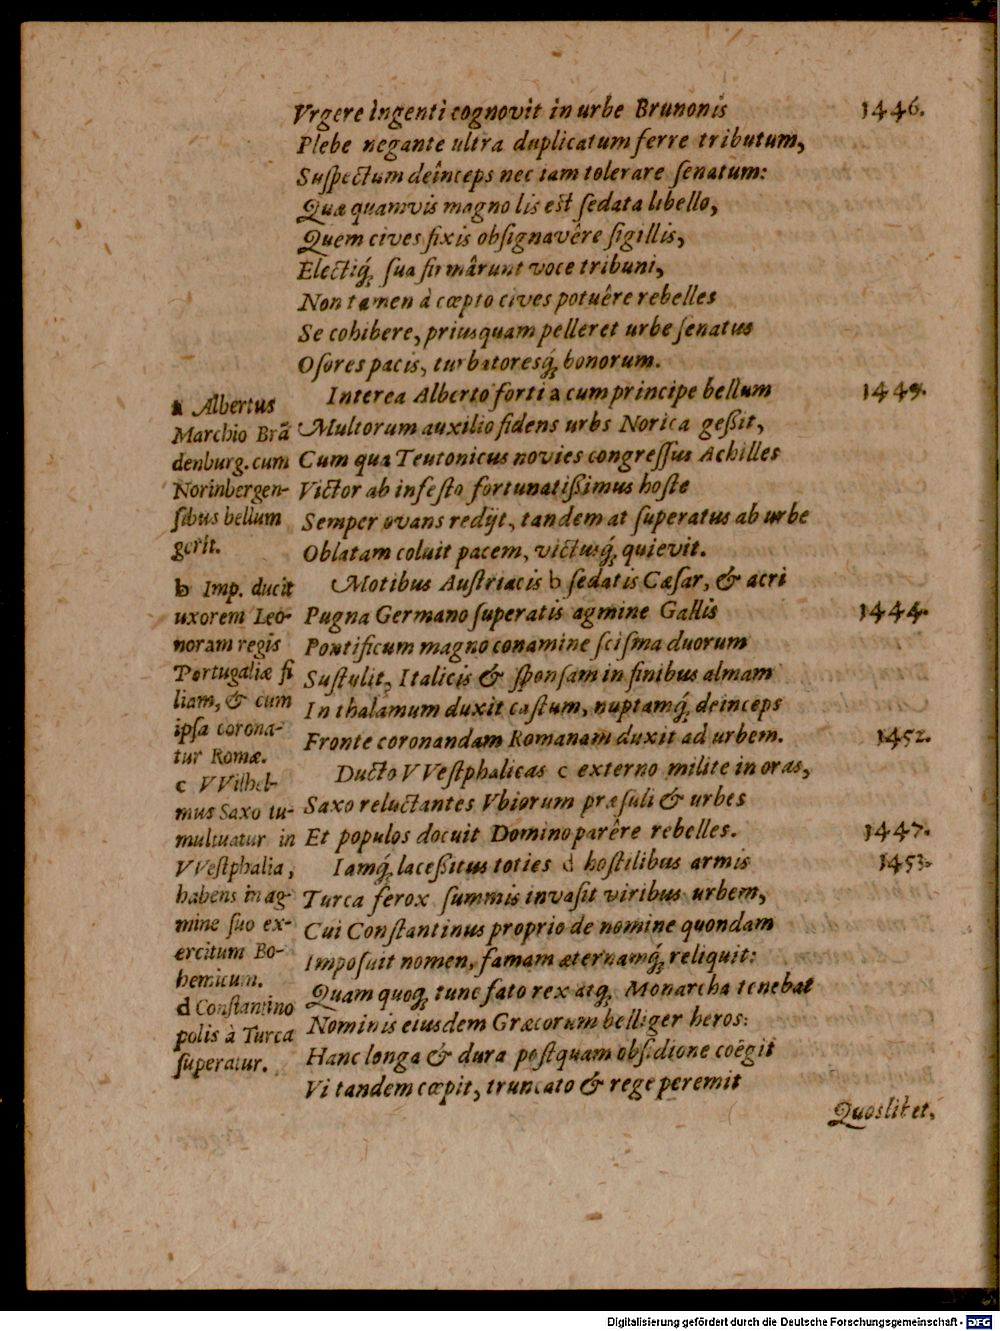 Vrgere ingenti cognovit in urbe Brunonis 1446.
Plebe negante ultra duplicatum ferre tributum,
Suspectum deînceps nec iam tolerare senatum:
Quæ quamvis magno lis est sedata libello,
Quem cives fixis obsignavêre sigillis,
Electiq́; sua firmârunt voce tribuni,
Non tamen à cœpto cives potuêre rebelles
Se cohibere, priusquam pelleret urbe senatus
Osores pacis, turbatoresq́; bonorum.
Interea Alberto forti a cum principe bellum 1449.
Multorum auxilio fidens urbs Norica geßit,
Cum qua Teutonicus novies congressus Achilles
Victor ab infesto fortunatißimus hoste
Semper ovans redijt, tandem at superatus ab urbe
Oblatam coluit pacem, victusq́; quievit.
Motibus Austriacis b sedatis Cæsar, & acri
Pugna Germano superatis agmine Gallis 1444.
Pontificum magno conamine scisma duorum
Sustulit, Italicis & sponsam in finibus almam
In thalamum duxit castum, nuptamq́; deinceps
Fronte coronandam Romanam duxit ad urbem. 1452.
Ducto VVestphalicas c externo milite in oras,
Saxo reluctantes Vbiorum præsuli & urbes
Et populos docuit Domino parêre rebelles. 1447.
Iamq́; laceßitus toties d hostilibus armis 1453.
Turca ferox summis invasit viribus urbem,
Cui Constantinus proprio de nomine quondam
Imposuit nomen, famam æternamq́; reliquit:
Quam quoq; tunc fato rex atq; Monarcha tenebat
Nominis eiusdem Græcorum belliger heros:
Hanc longa & dura postquam obsidione coëgit
Vi tandem cœpit, truncato & rege peremit
Quoslibet,
a Albertus
Marchio Brã
denburg. cum
Norinbergen-
sibus bellum
gerit.
b Imp. ducit
uxorem Leo-
noram regis
Portugaliæ fi
liam, & cum
ipsa corona-
tur Romæ.
c VVilhel-
mus Saxo tu-
multuatur in
VVestphalia,
habens in ag-
mine suo ex-
ercitum Bo-
hemicum.
d Constantino
polis à Turca
superatur.
Digitalisierung gefördert durch die Deutsche Forschungsgemeinschaft - DFG